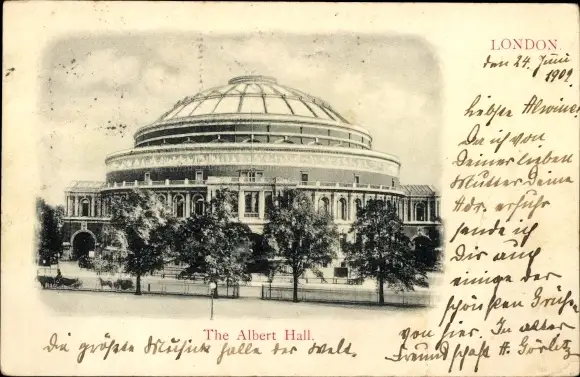 LONDON.
den 24. Juni
1902
Liebste Alwine!
Da ich von
Deiner lieben
Mutter Deine
Adr. erfuhr
sende ich
Dir auch
einige der
schönsten Grüße
von hier. In alter
Freundschaft H. Görlitz
The Albert Hall.
Die größte Musick halle der Welt.